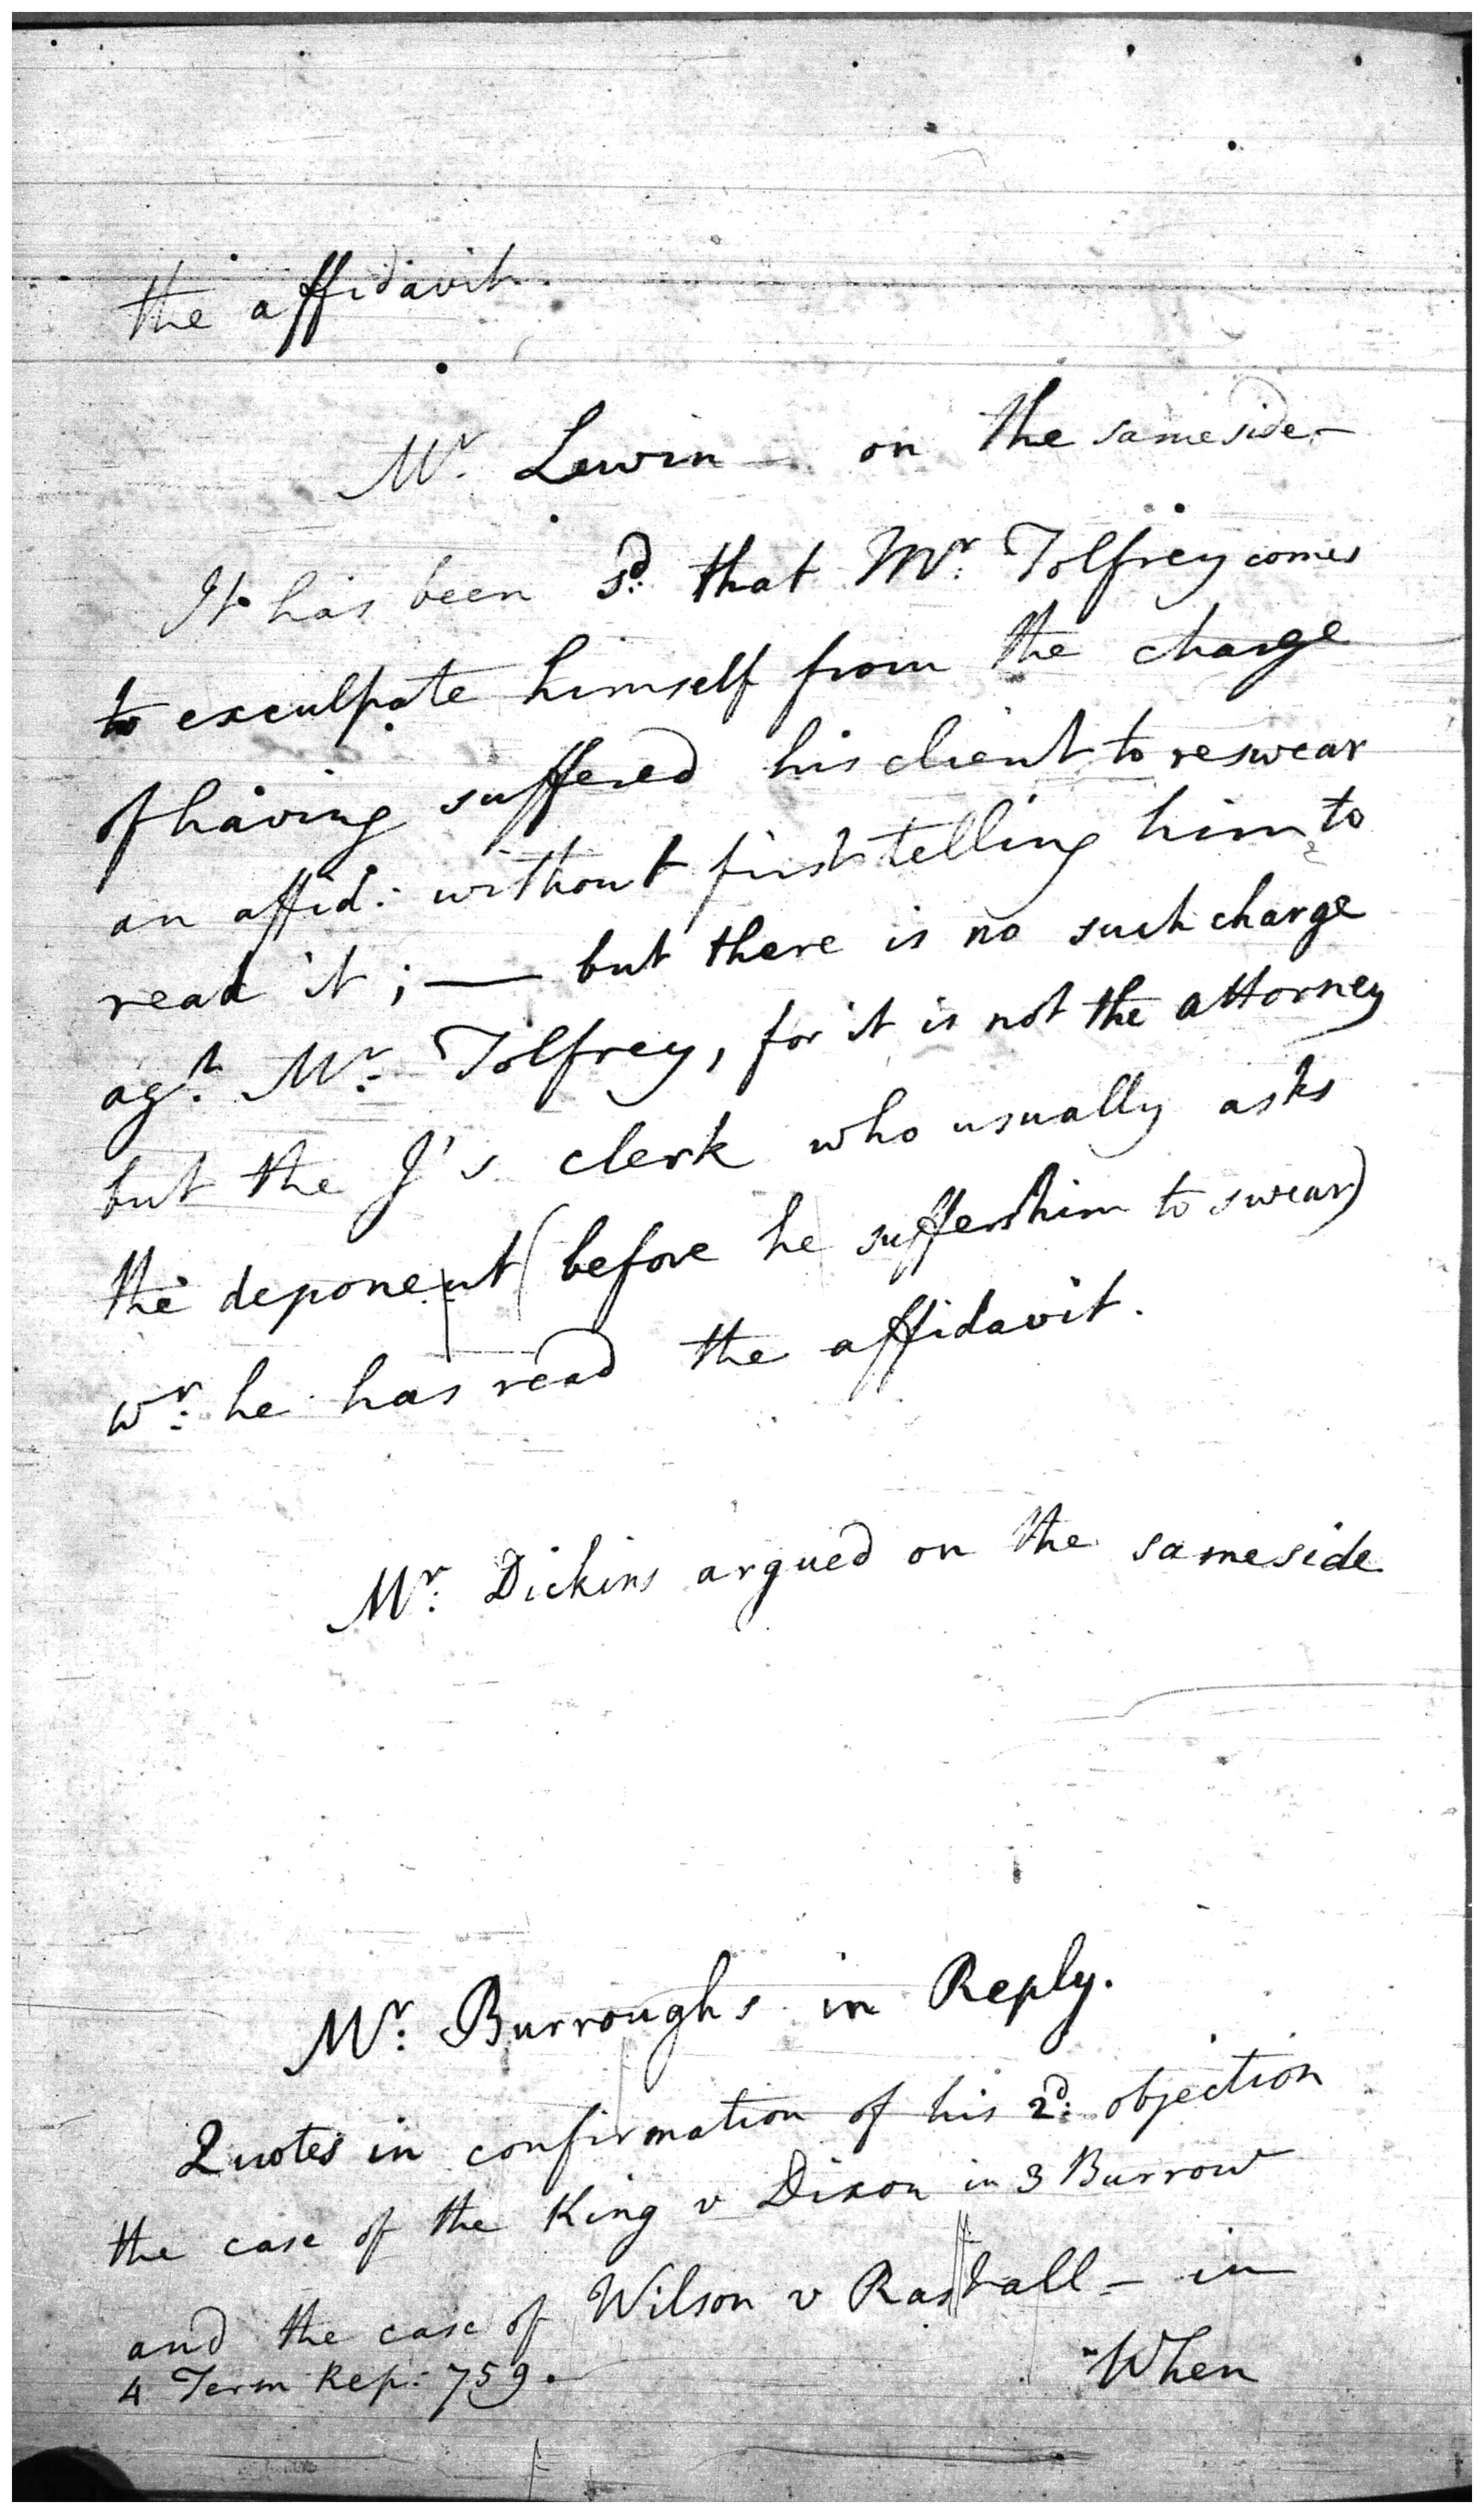 the affidavit.
Mr. Lewin — on the same side —
It has been sd. that Mr. Tolfrey comes
to exculpate himself from the charge
of having suffered his client to reswear
an affid: without first telling him to
read it; — but there is no such charge
agt. Mr. Tolfrey, for it is not the attorney
but the J's clerk who usually asks
the deponent (before he suffers him to swear)
wr. he has read the affidavit.
Mr. Dickins argued on the same side
Mr. Burroughs in Reply.
Quotes in confirmation of his 2d. objection
the case of the King v Dixon in 3 Burrow
and the case of Wilson v Rastall — in
4 Term Rep: 759.
When